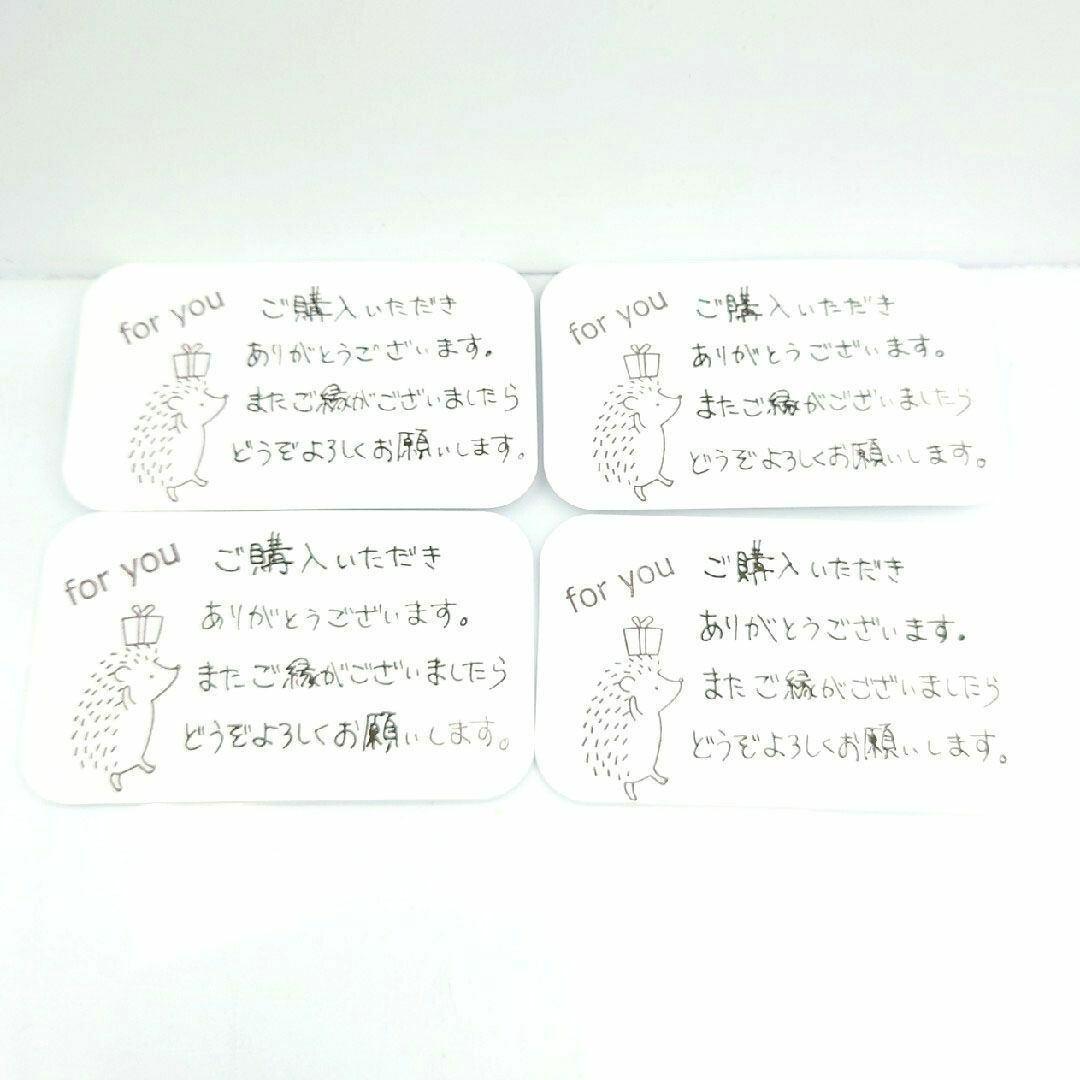 for you
ご購入いただき
ありがとうございます。
またご縁がございましたら
どうぞよろしくお願いします。
for you
ご購入いただき
ありがとうございます。
またご縁がございましたら
どうぞよろしくお願いします。
for you
ご購入いただき
ありがとうございます。
またご縁がございましたら
どうぞよろしくお願いします。
for you
ご購入いただき
ありがとうございます。
またご縁がございましたら
どうぞよろしくお願いします。